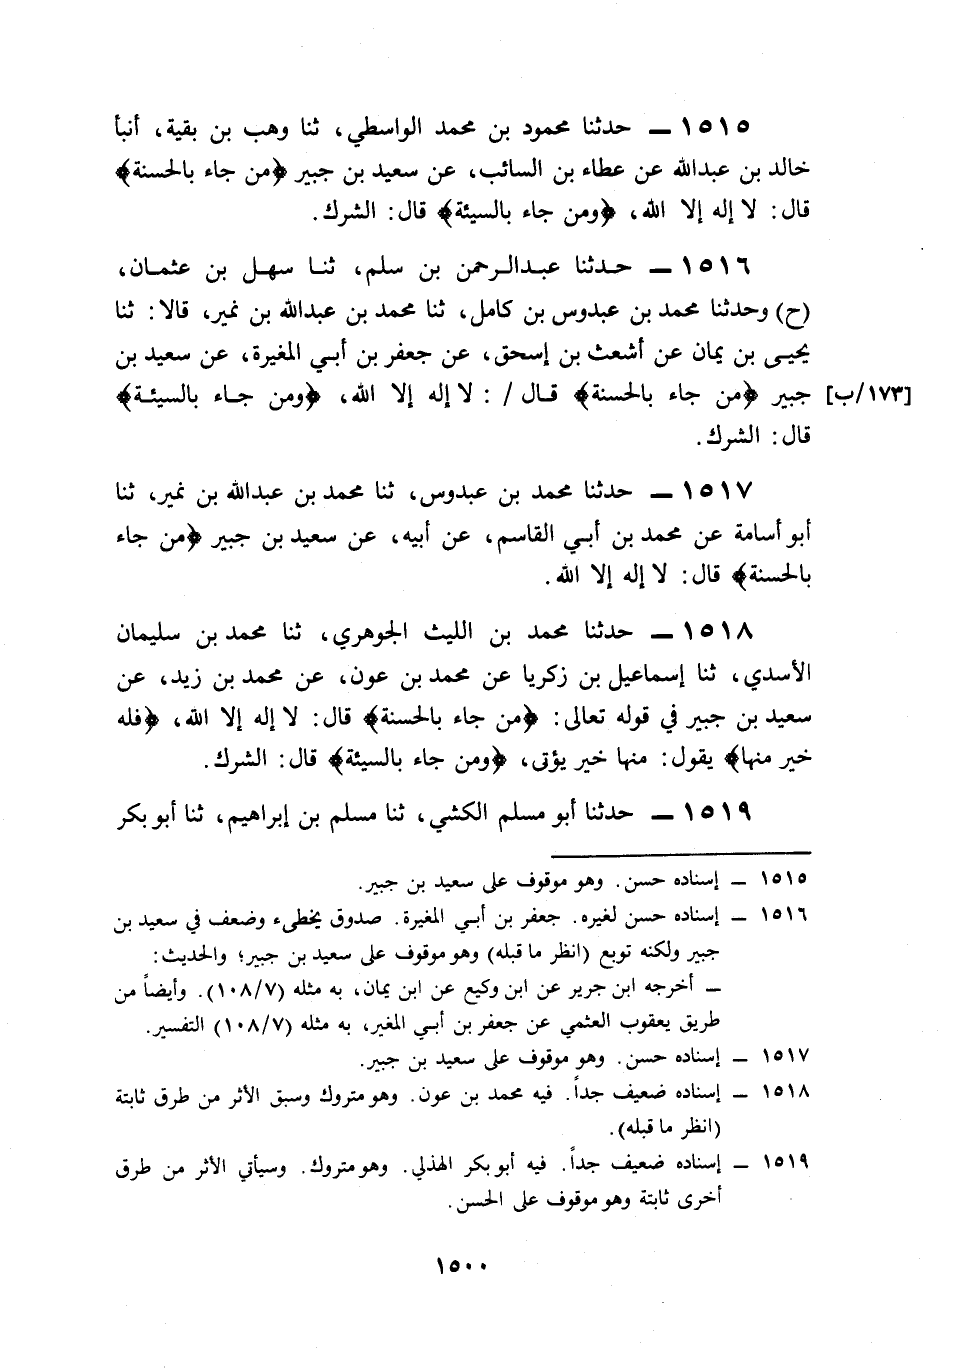 ١٥١٥ ــ حدثنا محمود بن محمد الواسطي، ثنا وهب بن بقية، أنبأ
خالد بن عبدالله عن عطاء بن السائب، عن سعيد بن جبير ﴿من جاء بالحسنة﴾
قال: لا إله إلا الله، ﴿ومن جاء بالسيئة﴾ قال: الشرك.
١٥١٦ ــ حـدثنا عبـدالـرحمن بن سلم، ثنـا سهـل بن عثمـان،
(ح) وحدثنا محمد بن عبدوس بن كامل، ثنا محمد بن عبدالله بن نمير، قالا: ثنا
يحيـى بن يمان عن أشعث بن إسحق، عن جعفر بن أبـي المغيرة، عن سعيد بن
[١٧٣/ب] جبير ﴿من جاء بالحسنة﴾ قـال / : لا إله إلا الله، ﴿ومن جـاء بالسيئـة﴾
قال: الشرك.
١٥١٧ ــ حدثنا محمد بن عبدوس، ثنا محمد بن عبدالله بن نمير، ثنا
أبو أسامة عن محمد بن أبـي القاسم، عن أبيه، عن سعيد بن جبير ﴿من جاء
بالحسنة﴾ قال: لا إله إلا الله.
١٥١٨ ــ حدثنا محمد بن الليث الجوهري، ثنا محمد بن سليمان
الأسدي، ثنا إسماعيل بن زكريا عن محمد بن عون، عن محمد بن زيد، عن
سعيد بن جبير في قوله تعالى: ﴿من جاء بالحسنة﴾ قال: لا إله إلا الله، ﴿فله
خير منها﴾ يقول: منها خير يؤتى، ﴿ومن جاء بالسيئة﴾ قال: الشرك.
١٥١٩ ــ حدثنا أبو مسلم الكشي، ثنا مسلم بن إبراهيم، ثنا أبو بكر
١٥١٥ ــ إسناده حسن. وهو موقوف على سعيد بن جبير.
١٥١٦ ــ إسناده حسن لغيره. جعفر بن أبـي المغيرة. صدوق يخطىء وضعف في سعيد بن
جبير ولكنه توبع (انظر ما قبله) وهو موقوف على سعيد بن جبير؛ والحديث:
ــ أخرجه ابن جرير عن ابن وكيع عن ابن يمان، به مثله (١٠٨/٧). وأيضاً من
طريق يعقوب العثمي عن جعفر بن أبـي المغير، به مثله (١٠٨/٧) التفسير.
١٥١٧ ــ إسناده حسن. وهو موقوف على سعيد بن جبير.
١٥١٨ ــ إسناده ضعيف جداً. فيه محمد بن عون. وهو متروك وسبق الأثر من طرق ثابتة
(انظر ما قبله).
١٥١٩ ــ إسناده ضعيف جداً. فيه أبو بكر الهذلي. وهو متروك. وسيأتي الأثر من طرق
أخرى ثابتة وهو موقوف على الحسن.
١٥٠٠